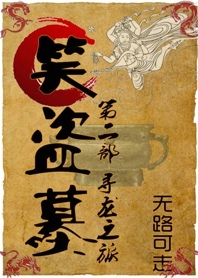 笑盗墓
第二部 寻龙之旅
无路可走